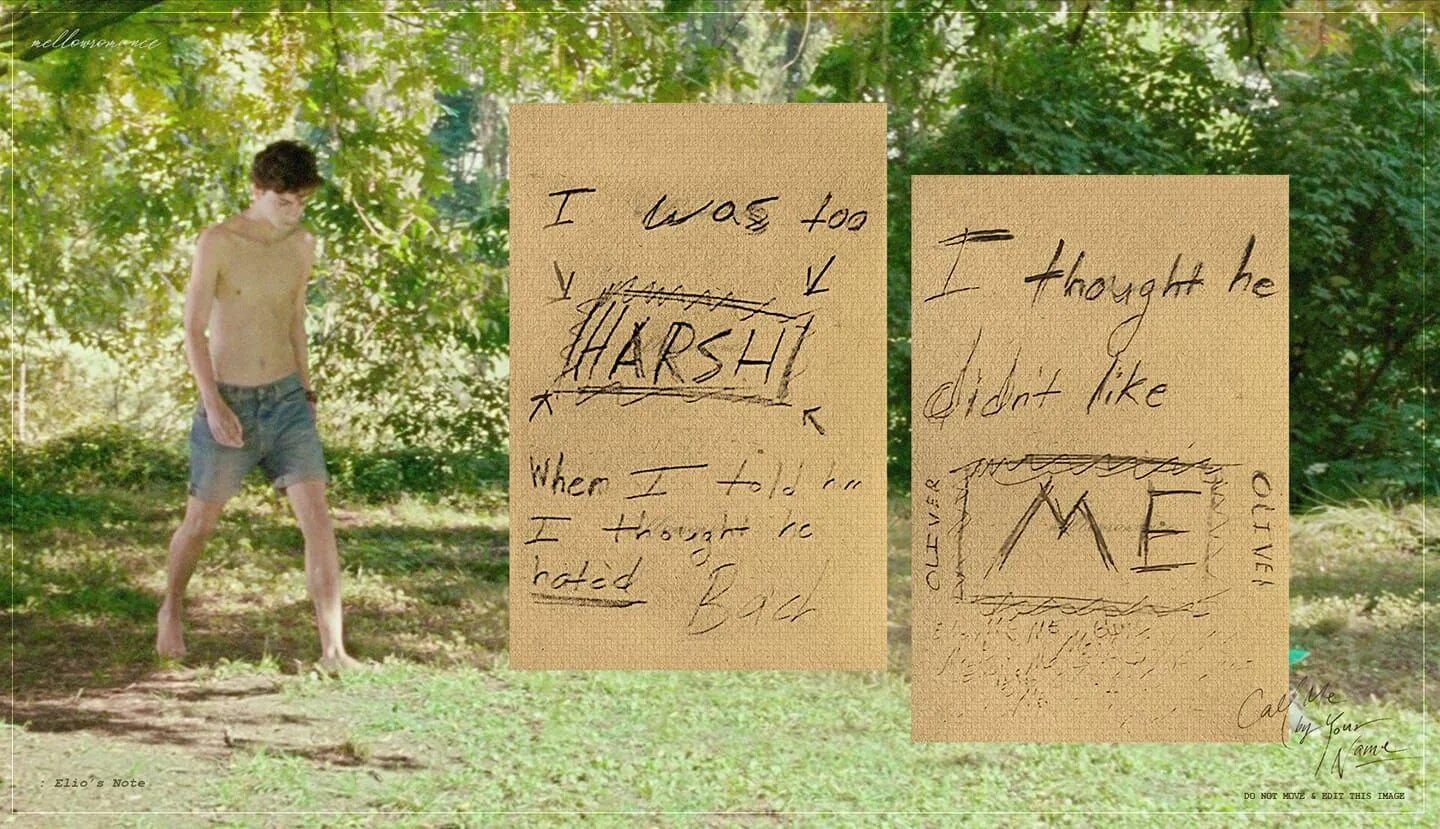 mellowromance
I was too
HARSH
When I told
I thought he
hated Bad
I thought he
didn't like
OLIVER
ME
OLIVE
Call Me
by Your
Name
: Elio's Note
DO NOT MOVE & EDIT THIS IMAGE